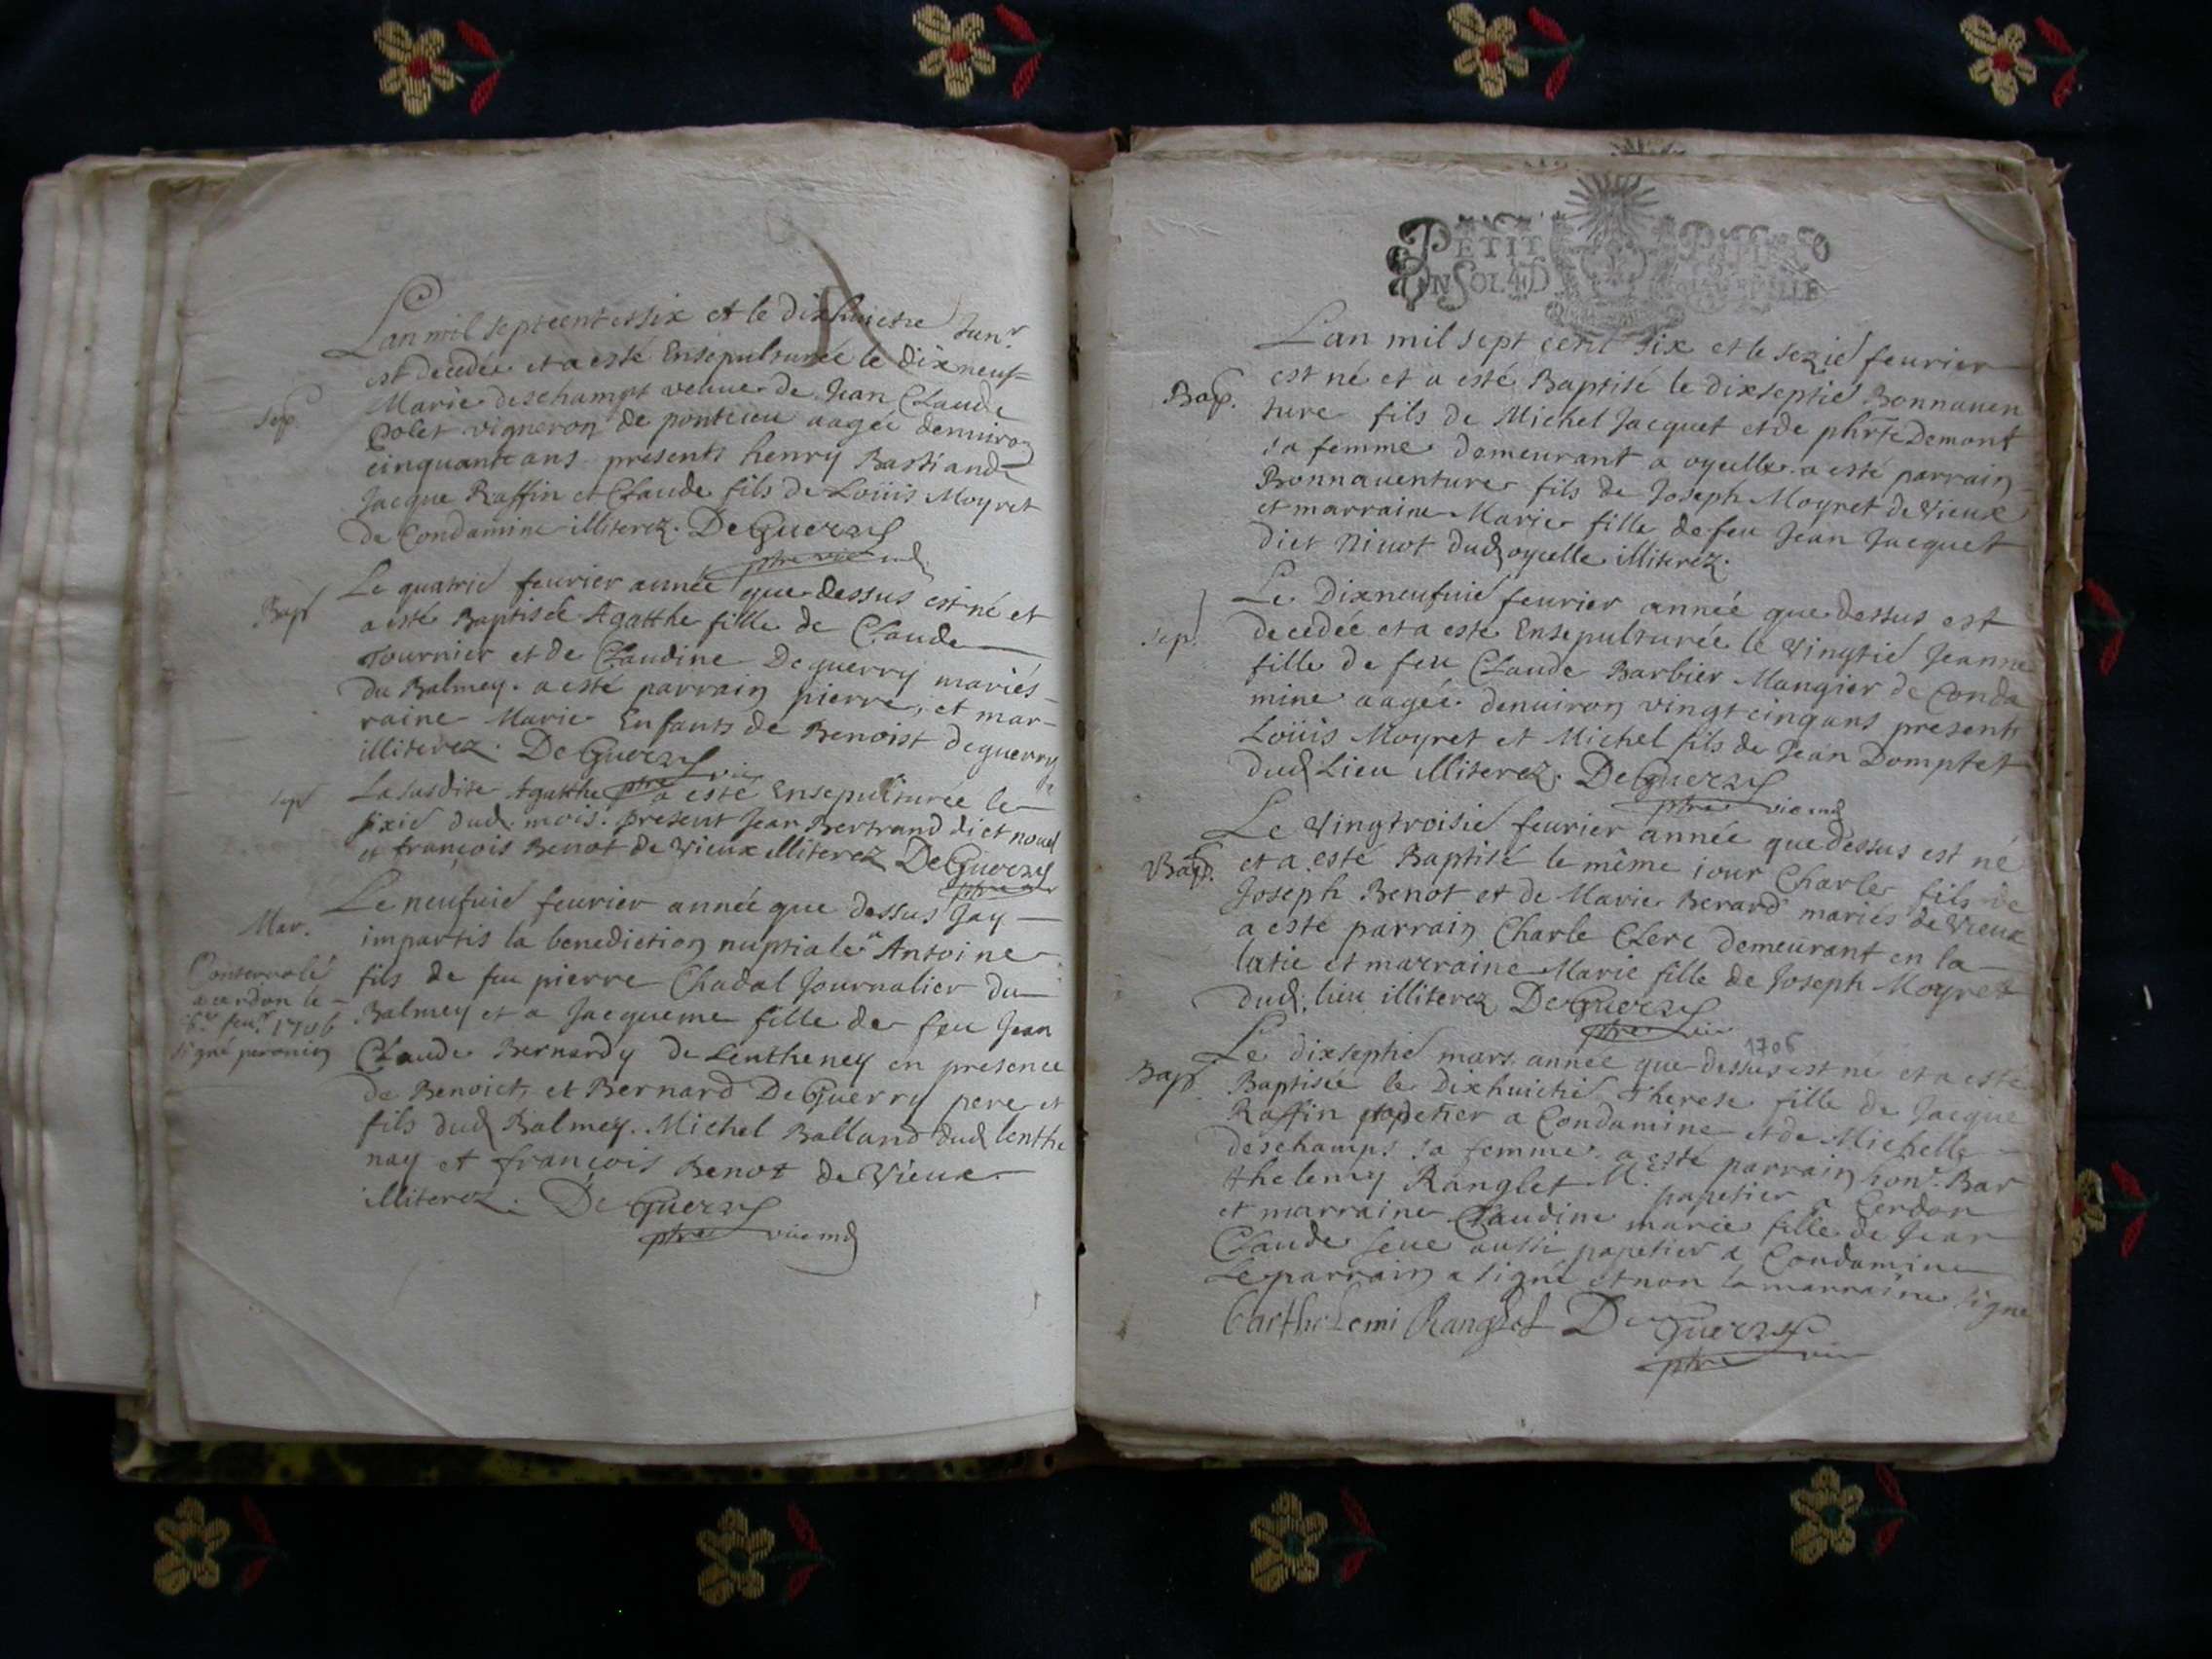 Lan mil septcent et six et le dixhuictie Janr.
est decedée et a esté Ensepulturée le dixneuf
Sep.
Marie deschamps veuve de Jean Claude
Polet vigneron de pontcieu aagée denuiron
cinquante ans presents henry Bastiand
Jacque Raffin et Claude fils de Loüis Moyret
de Condamine illiterez. DeGuerry
ptre vic
Le quatrie feurier année que dessus est né et
Bap
a esté Baptisée Agatthe fille de Claude
Tournier et de Claudine Deguerry mariés
du Balmey. a esté parrain pierre, et mar-
raine Marie Enfants de Benoist deguerry
illiterez. DeGuerry
ptre vic
Sep
La susdite Agatthe a esté Ensepulturée le
sixie dud. mois. present Jean Bertrand dict nouel
et françois Benot de Vieux illiterez DeGuerry
ptre
Le neufuie feurier année que dessus Jay
Mar.
impartis la benediction nuptiale a Antoine
fils de feu pierre Chadal Journalier du
Balmey et a Jacqueme fille de feu Jean
Claude Bernardy de Lentheney en presence
de Benoict, et Bernard DeGuerry pere et
fils dud Balmey. Michel Balland dud lenthe
nay et françois Benot de Vieux
illiterez. DeGuerry
ptre vic
Controrolé
a cerdon le
feur. 1706
signé peronin
PETIT PAPIER
UN SOL 4 D LA FEUILLE
Lan mil sept cent six et le sezie feurier
est né et a esté Baptisé le dixseptie Bonnauen
Bap.
ture fils de Michel Jacquet et de phrte Demont
sa femme demeurant a oyselle a esté parrain
Bonnauenture fils de Joseph Moyret de Vieux
et marraine Marie fille de feu Jean Jacquet
dict Niuot dud oyselle illiterez.
Le Dixneufuie feurier année que dessus est
Sep.
decedée et a esté Ensepulturée le Vingtie Jeanne
fille de feu Claude Barbier Mangier de Conda
mine aagée denuiron vingtcinq ans presents
Loüis Moyret et Michel fils de Jean Domptet
dud Lieu illiterez. DeGuerry
ptre vic
Le Vingtroisie feurier année que dessus est né
Bap.
et a esté Baptisé le même iour Charle fils de
Joseph Benot et de Marie Berard mariés de Vieux
a esté parrain Charle Clerc demeurant en la
latie et marraine Marie fille de Joseph Moyret
dud. lieu illiterez DeGuerry
ptre vic
1706
Le dixseptie mars année que dessus est né et a esté
Bap.
Baptisée le Dixhuictie Therese fille de Jacque
Raffin papetier a Condamine et de Michelle
deschamps sa femme. a esté parrain honr. Bar
thelemy Ranglet M. papetier a Cerdon
et marraine Claudine marie fille de Jean
Claude Seue aussi papetier a Condamine
Le parrain a signé et non la marraine
barthelemi Ranglet DeGuerry
ptre vic